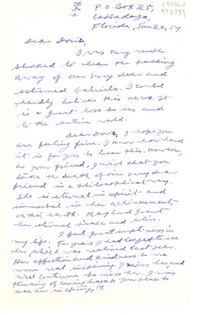 P.O. Box 25,
Cassadaga,
Florida, Jan 20, 57
Dear Doris,
I was very much
shocked to hear the passing
away of our very dear and
esteemed Gabriela. I could
hardly believe this news. It
is a great loss to us and
to the entire world.
Dear Doris, I hope you
are feeling fine. I know how hard
it is for you to bear this. However,
as your friend, I wish that you
take the death of our very dear
friend in a philosophical way.
She is eternal in spirit and
immortal in her achievement
on this earth. May God grant
her eternal peace and bliss.
I feel great emptiness in
my life. For years I had longed to see
her which was realized last year.
Her affection and kindness to me
were real inspiring. I miss her and
will continue to miss her. I was
thinking of coming back to your place to
see her in spring,